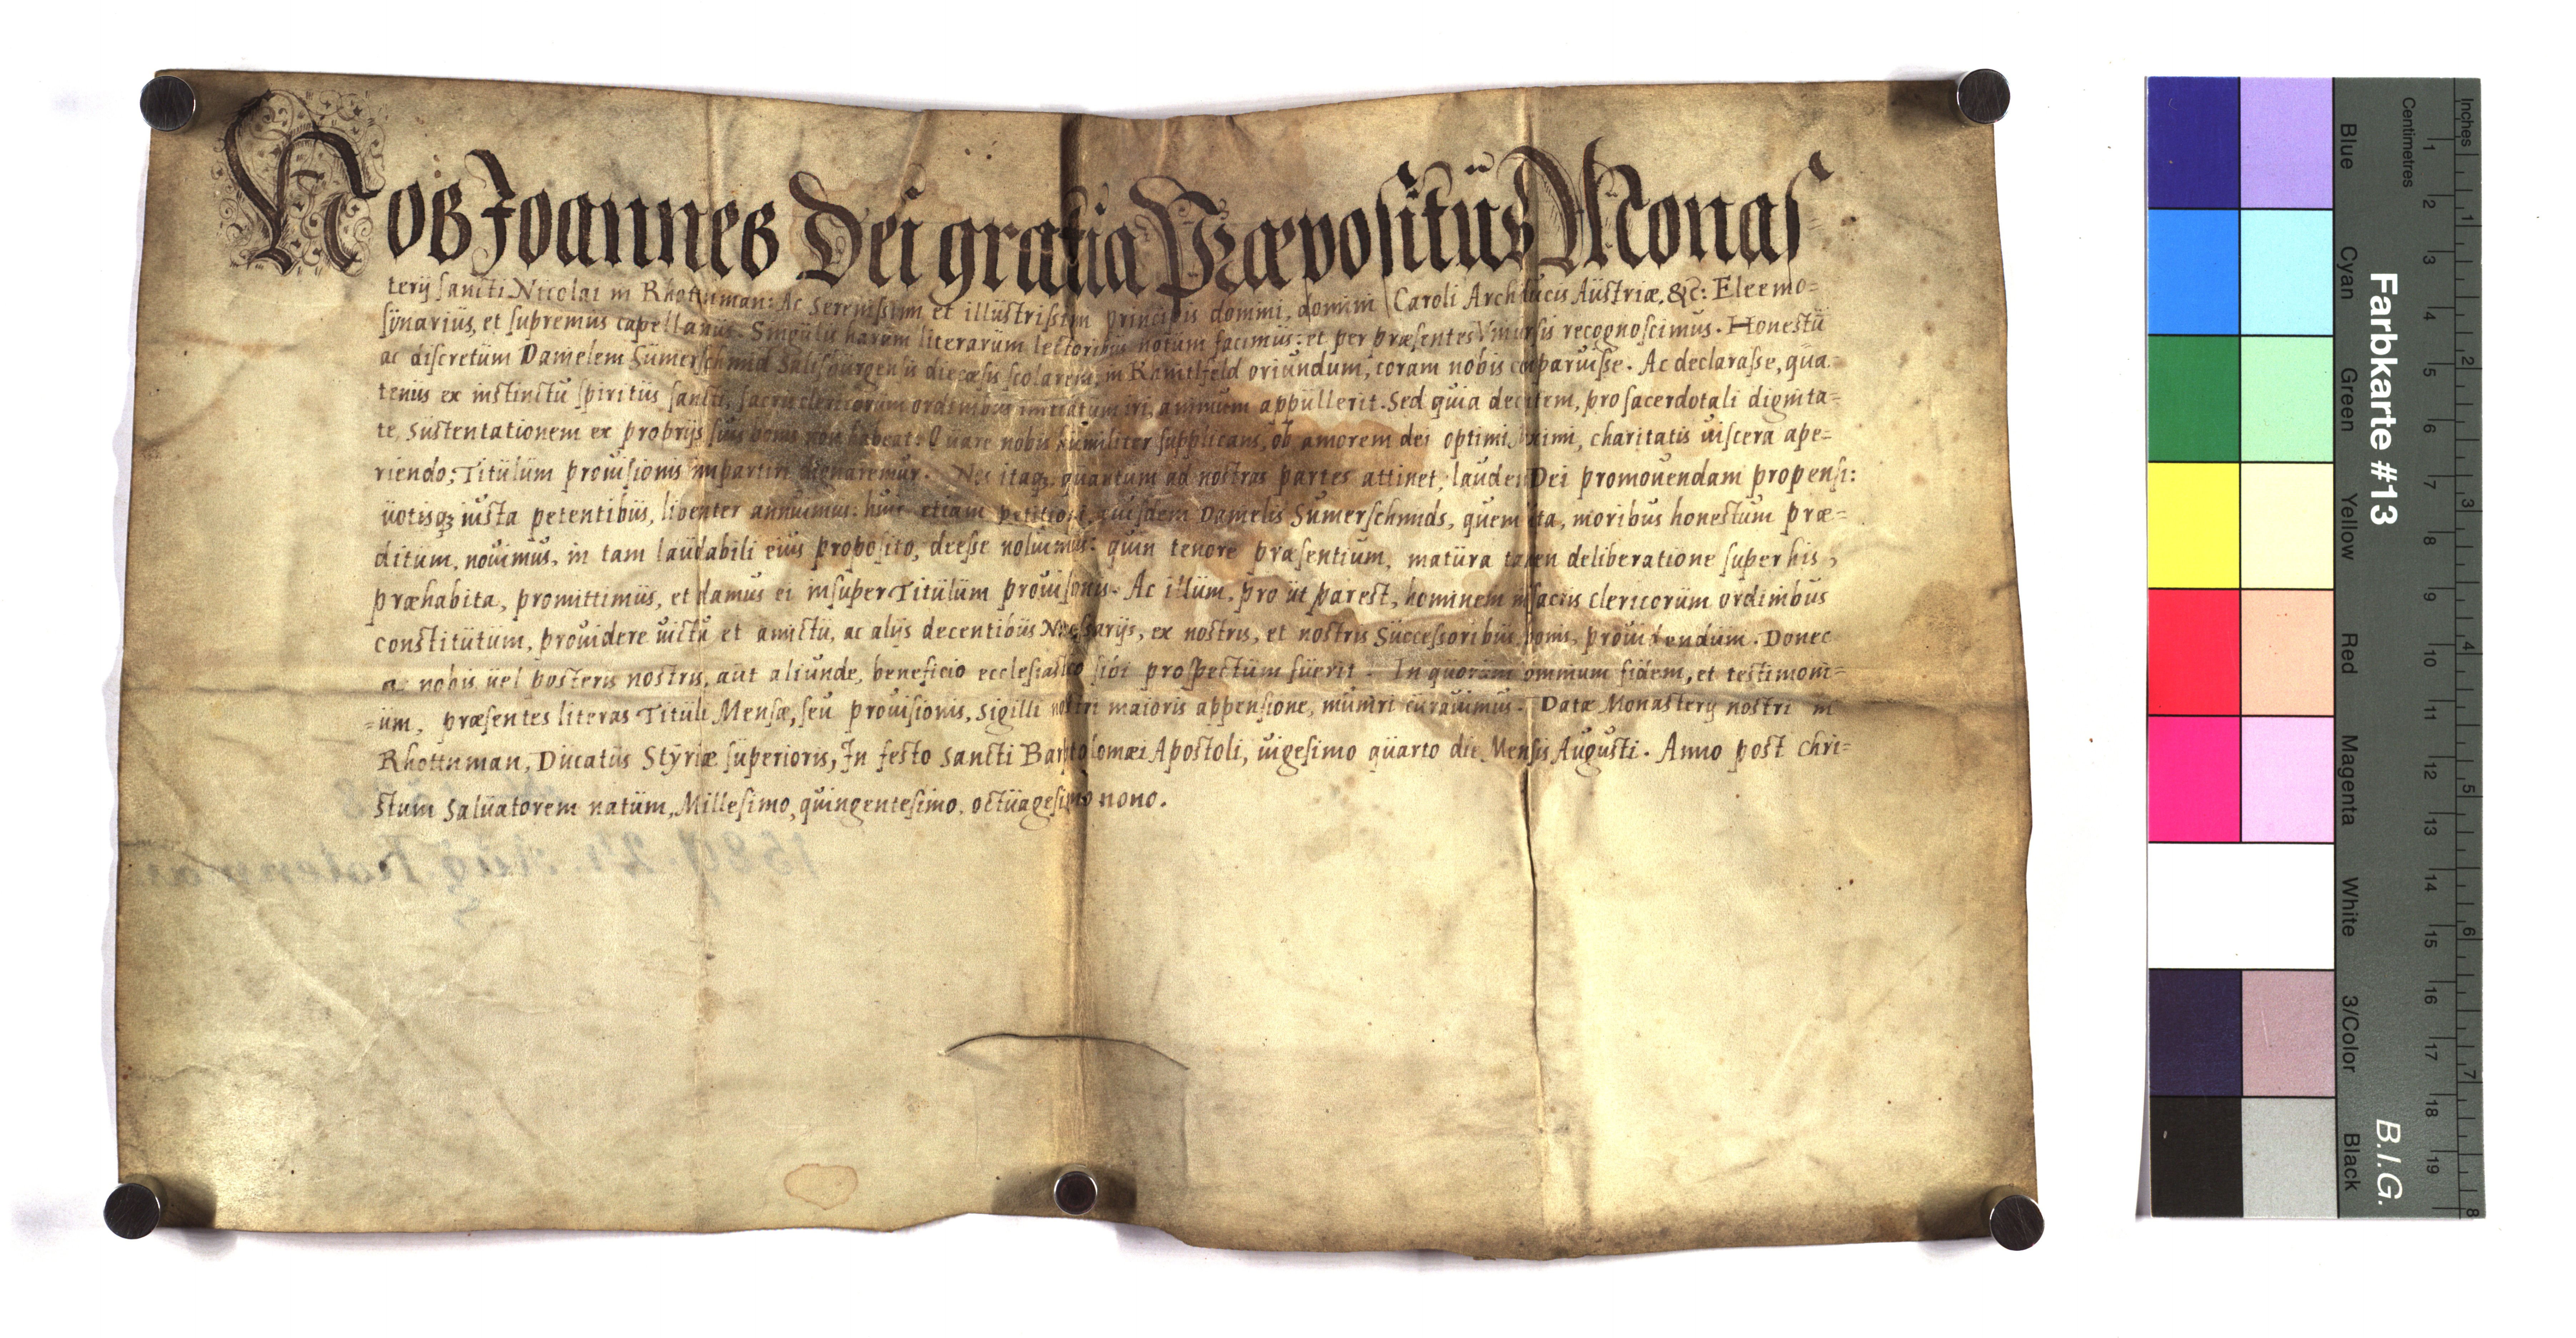 Nos Joannes Dei gratia Præpositus Monas
terij sancti Nicolai in Rhottnman: Ac Serenissimi et illustrissimi principis domini, domini Caroli Archiducis Austriæ, &c: Eleemo=
synarius, et supremus capellanus. Singulis harum literarum lectoribus notum facimus: et per præsentes Vniuersis recognoscimus. Honestū
ac discretum Danielem Sumerschmid Salisburgensis diecæsis scolarem, in Knitlfeld oriundum, coram nobis cōparuisse. Ac declarasse, qua
tenus ex instinctu spiritus sancti, sacris clericorum ordinibus initiatum iri, animum appullerit. Sed quia decentem, pro sacerdotali dignita=
te, Sustentationem ex proprijs suis bonis non habeat: Quare nobis humiliter supplicans, ob amorem dei optimi maximi, charitatis uiscera ape=
riendo; Titulum prouisionis impartiri dignaremur. Nos itaq₃ quantum ad nostras partes attinet, laudem Dei promouendam propensi:
uotisq₃ iusta petentibus, libenter annuimus: huic etiam petitioni, eiusdem Danielis Sumerschmids, quem ita, moribus honestum præ=
ditum, nouimus, in tam laudabili eius proposito, deesse noluimus: quin tenore præsentium, matura tamen deliberatione super his,
præhabita, promittimus, et damus ei insuper Titulum prouisionis. Ac illum, pro ut par est, hominem in sacris clericorum ordinibus
constitutum, prouidere uictu et amictu, ac alijs decentibus Necessarijs, ex nostris, et nostris Successoribus bonis, prouidendum. Donec
a nobis uel posteris nostris, aut aliunde, beneficio ecclesiastico sibi prospectum fuerit. In quorum omnium fidem, et testimoni=
=um, præsentes literas Tituli Mensæ, seu prouisionis, Sigilli nostri maioris appensione, muniri curauimus. Datæ Monasterij nostri in
Rhottnman, Ducatus Styriæ superioris, In festo Sancti Bartolomæi Apostoli, uigesimo quarto die Mensis Augusti. Anno post chri=
stum Saluatorem natum, Millesimo, quingentesimo, octuagesimo nono.
1589. 24. Aug. Rotenman
Farbkarte #13
B.I.G.
Blue
Cyan
Green
Yellow
Red
Magenta
White
3/Color
Black
Inches
1 2 3 4 5 6 7 8
Centimetres
1 2 3 4 5 6 7 8 9 10 11 12 13 14 15 16 17 18 19